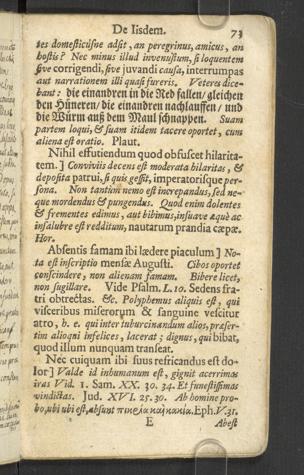 De Iisdem. 73
tes domesticusne adsit, an peregrinus, amicus, an
hostis? Nec minus illud invenustum, si loquentem
sive corrigendi, sive juvandi causa, interrumpas
aut narrationem illi quasi fureris. Veteres dice-
bant: die einandren in die Red fallen / gleichen
den Hüneren / die einandren nachlauffen / und
die Würm auß dem Maul schnappen. Suam
partem loqui, & suam itidem tacere oportet, cum
aliena est oratio. Plaut.
Nihil effutiendum quod obfuscet hilarita-
tem. ] Conviviis decens est moderata hilaritas, &
deposita patrui, si quis gessit, imperatorisque per-
sona. Non tantum nemo est increpandus, sed ne-
que mordendus & pungendus. Quod enim dolentes
& frementes edimus, aut bibimus, insuave æquè ac
insalubre est redditum, nautarum prandia cæpæ.
Hor.
Absentis famam ibi lædere piaculum ] No-
ta est inscriptio mensæ Augusti. Cibos oportet
conscindere, non alienam famam. Bibere licet,
non sugillare. Vide Psalm. L. 10. Sedens fra-
tri obtrectas. &c. Polyphemus aliquis est, qui
visceribus miserorum & sanguine vescitur
atro, h. e. qui inter tuburcinandum alios, præser-
tim alioqui infelices, lacerat; dignus, qui bibat,
quod illum nunquam transeat.
Nec cuiquam ibi suus refricandus est do-
lor ] Valde id inhumanum est, gignit acerrimas
iras Vid. 1. Sam. XX. 30. 34. Et funestissimas
vindictas. Jud. XVI. 25. 30. Ab homine pro-
bo, ubi ubi est, absunt πικρία καὶ κακία. Eph. V. 31.
E Abest